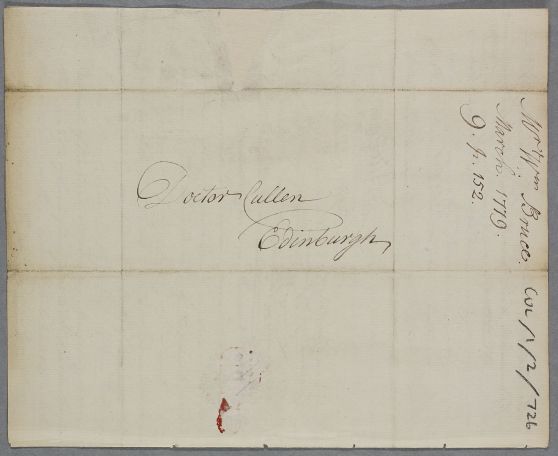 Doctor Cullen
Edinburgh
Mr Wm Bruce.
March. 1779.
9. p. 152.
CUL/1/2/726